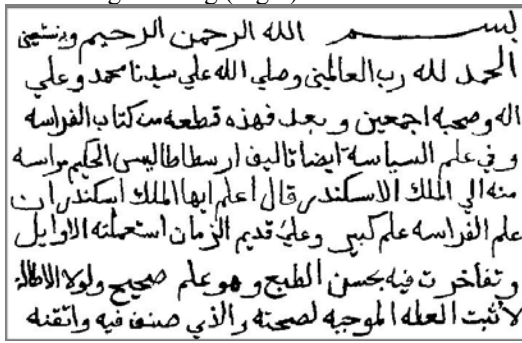 بســـم الله الرحمن الرحيم وبه نستعين
الحمد لله رب العالمين وصلي الله علي سيدنا محمد وعلي
اله وصحبه اجمعين وبعد فهذه قطعه من كتاب الفراسه
وفي علم السياسه ايضا تاليف ارسطاطاليس الحكيم مراسه
منه الي الملك الاسكندر قال اعلم ايها الملك اسكندر ان
علم الفراسه علم كبير وعلي قديم الزمان استعملته الاوايل
وتفاخرت فيه بحسن الطبع وهو علم صحيح ولولا الاطاله
لاثبت العله الموجبه لصحته والذي صنف فيه واتقنه